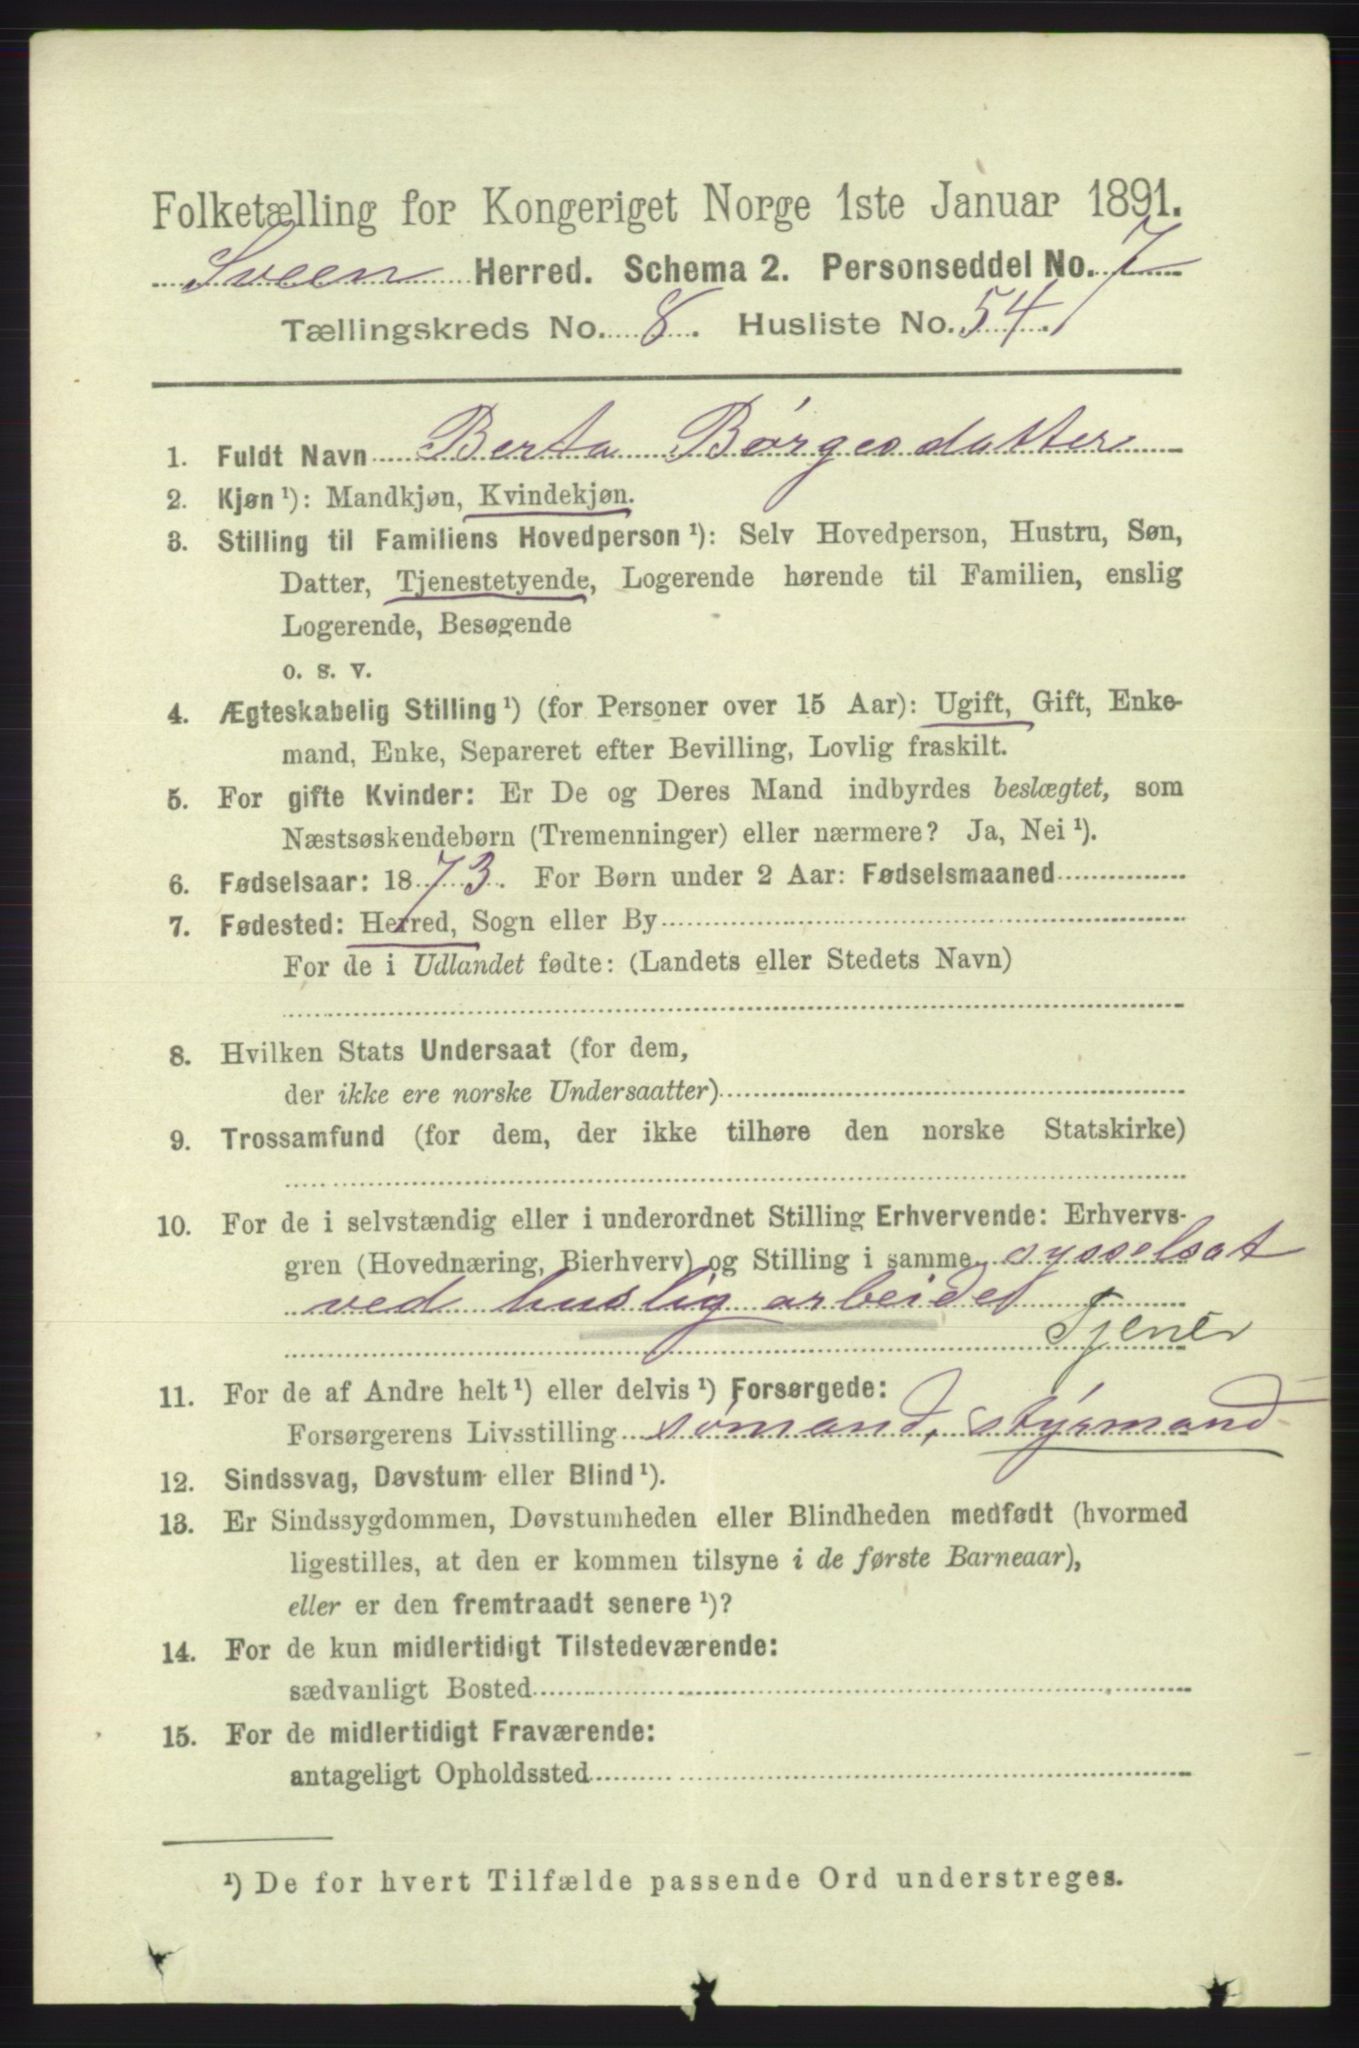 Folketælling for Kongeriget Norge 1ste Januar 1891.
Sveen Herred. Schema 2. Personseddel No. 7
Tællingskreds No. 8. Husliste No. 54.
1. Fuldt Navn Berta Børgesdatter
2. Kjøn¹): Mandkjøn, Kvindekjøn.
3. Stilling til Familiens Hovedperson¹): Selv Hovedperson, Hustru, Søn,
Datter, Tjenestetyende, Logerende hørende til Familien, enslig
Logerende, Besøgende
o. s. v.
4. Ægteskabelig Stilling¹) (for Personer over 15 Aar): Ugift, Gift, Enke-
mand, Enke, Separeret efter Bevilling, Lovlig fraskilt.
5. For gifte Kvinder: Er De og Deres Mand indbyrdes beslægtet, som
Næstsøskendebørn (Tremenninger) eller nærmere? Ja, Nei¹).
6. Fødselsaar: 1873. For Børn under 2 Aar: Fødselsmaaned
7. Fødested: Herred, Sogn eller By
For de i Udlandet fødte: (Landets eller Stedets Navn)
8. Hvilken Stats Undersaat (for dem,
der ikke ere norske Undersaatter)
9. Trossamfund (for dem, der ikke tilhøre den norske Statskirke)
10. For de i selvstændig eller i underordnet Stilling Erhvervende: Erhvervs-
gren (Hovednæring, Bierhverv) og Stilling i samme sysselsat
ved huslig arbeide
Tjener
11. For de af Andre helt¹) eller delvis¹) Forsørgede:
Forsørgerens Livsstilling sømand, styrmand
12. Sindssvag, Døvstum eller Blind¹).
13. Er Sindssygdommen, Døvstumheden eller Blindheden medfødt (hvormed
ligestilles, at den er kommen tilsyne i de første Barneaar),
eller er den fremtraadt senere¹)?
14. For de kun midlertidigt Tilstedeværende:
sædvanligt Bosted
15. For de midlertidigt Fraværende:
antageligt Opholdssted
¹) De for hvert Tilfælde passende Ord understreges.